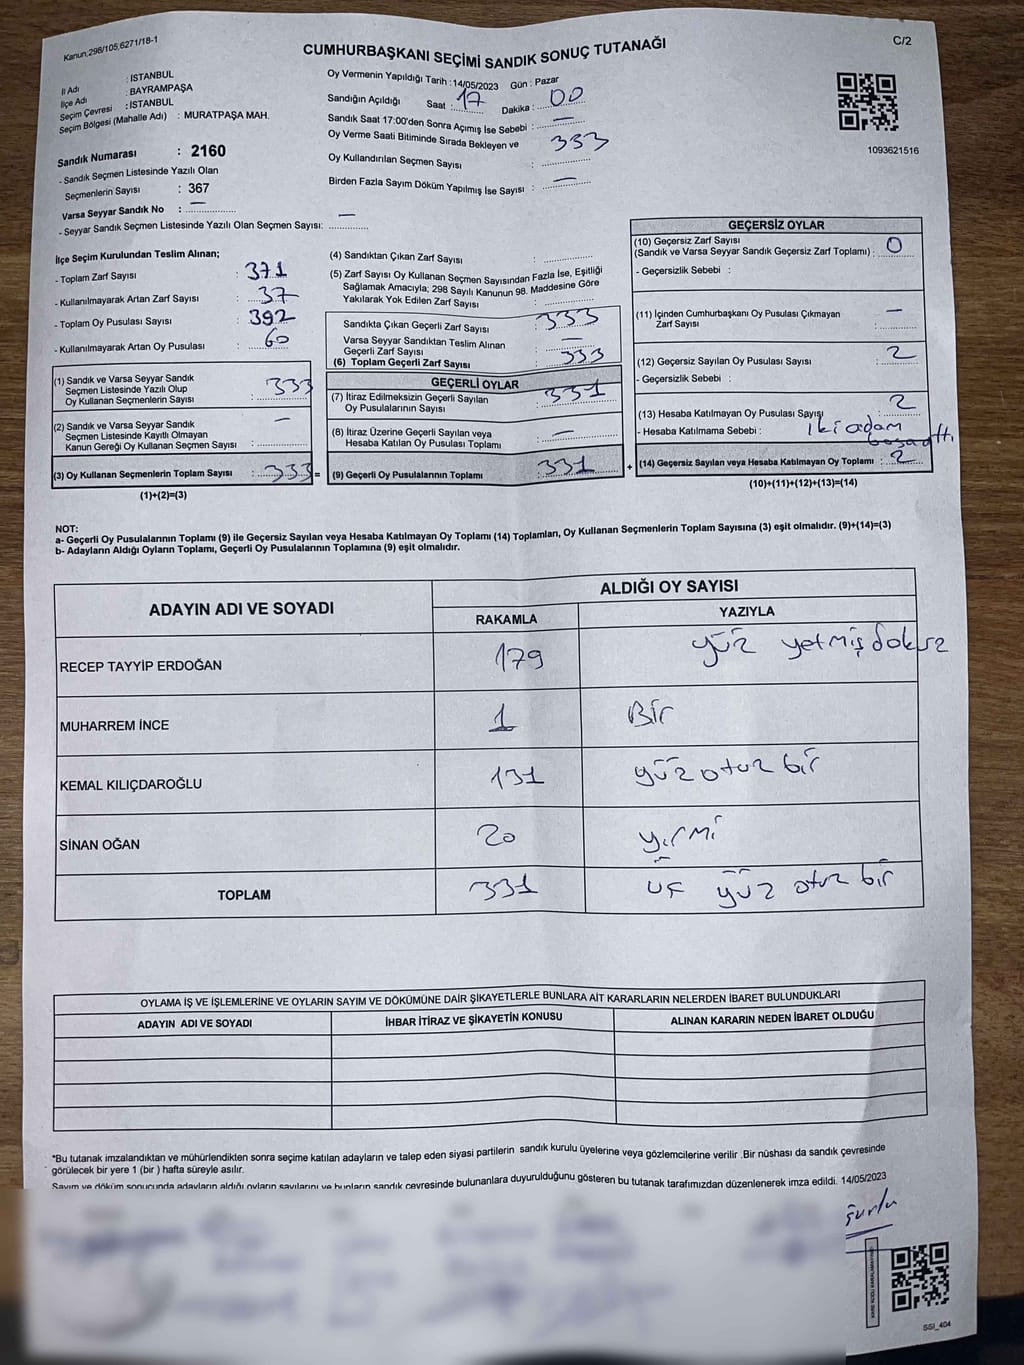 Kanun;298/105,6271/18-1
CUMHURBAŞKANI SEÇİMİ SANDIK SONUÇ TUTANAĞI
C/2
İl Adı : İSTANBUL
İlçe Adı : BAYRAMPAŞA
Seçim Çevresi : İSTANBUL
Seçim Bölgesi (Mahalle Adı) : MURATPAŞA MAH.
Sandık Numarası : 2160
- Sandık Seçmen Listesinde Yazılı Olan
Seçmenlerin Sayısı : 367
Varsa Seyyar Sandık No : —
- Seyyar Sandık Seçmen Listesinde Yazılı Olan Seçmen Sayısı: —
Oy Vermenin Yapıldığı Tarih : 14/05/2023 Gün : Pazar
Sandığın Açıldığı Saat : 17 Dakika : 00
Sandık Saat 17:00'den Sonra Açımış İse Sebebi : —
Oy Verme Saati Bitiminde Sırada Bekleyen ve 333
Oy Kullandırılan Seçmen Sayısı :
Birden Fazla Sayım Döküm Yapılmış İse Sayısı : —
1093621516
İlçe Seçim Kurulundan Teslim Alınan;
- Toplam Zarf Sayısı : 371
- Kullanılmayarak Artan Zarf Sayısı : 37
- Toplam Oy Pusulası Sayısı : 392
- Kullanılmayarak Artan Oy Pusulası : 60
(1) Sandık ve Varsa Seyyar Sandık
Seçmen Listesinde Yazılı Olup
Oy Kullanan Seçmenlerin Sayısı : 333
(2) Sandık ve Varsa Seyyar Sandık
Seçmen Listesinde Kayıtlı Olmayan
Kanun Gereği Oy Kullanan Seçmen Sayısı : —
(3) Oy Kullanan Seçmenlerin Toplam Sayısı : 333 =
(1)+(2)=(3)
(4) Sandıktan Çıkan Zarf Sayısı :
(5) Zarf Sayısı Oy Kullanan Seçmen Sayısından Fazla İse, Eşitliği
Sağlamak Amacıyla; 298 Sayılı Kanunun 98. Maddesine Göre
Yakılarak Yok Edilen Zarf Sayısı :
Sandıkta Çıkan Geçerli Zarf Sayısı : 333
Varsa Seyyar Sandıktan Teslim Alınan
Geçerli Zarf Sayısı : —
(6) Toplam Geçerli Zarf Sayısı : 333
GEÇERLİ OYLAR
(7) İtiraz Edilmeksizin Geçerli Sayılan
Oy Pusulalarının Sayısı : 331
(8) İtiraz Üzerine Geçerli Sayılan veya
Hesaba Katılan Oy Pusulası Toplamı : —
(9) Geçerli Oy Pusulalarının Toplamı : 331 +
GEÇERSİZ OYLAR
(10) Geçersiz Zarf Sayısı
(Sandık ve Varsa Seyyar Sandık Geçersiz Zarf Toplamı) : 0
- Geçersizlik Sebebi :
(11) İçinden Cumhurbaşkanı Oy Pusulası Çıkmayan
Zarf Sayısı : —
(12) Geçersiz Sayılan Oy Pusulası Sayısı : 2
- Geçersizlik Sebebi :
(13) Hesaba Katılmayan Oy Pusulası Sayışı : 2
- Hesaba Katılmama Sebebi : iki adam
boşa attı
(14) Geçersiz Sayılan veya Hesaba Katılmayan Oy Toplamı : 2
(10)+(11)+(12)+(13)=(14)
NOT:
a- Geçerli Oy Pusulasının Toplamı (9) ile Geçersiz Sayılan veya Hesaba Katılmayan Oy Toplamı (14) Toplamları, Oy Kullanan Seçmenlerin Toplam Sayısına (3) eşit olmalıdır. (9)+(14)=(3)
b- Adayların Aldığı Oyların Toplamı, Geçerli Oy Pusulalarının Toplamına (9) eşit olmalıdır.
ADAYIN ADI VE SOYADI
ALDIĞI OY SAYISI
RAKAMLA YAZIYLA
RECEP TAYYİP ERDOĞAN 179 yüz yetmiş dokuz
MUHARREM İNCE 1 Bir
KEMAL KILIÇDAROĞLU 131 yüz otuz bir
SİNAN OĞAN 20 yirmi
TOPLAM 331 üç yüz otuz bir
OYLAMA İŞ VE İŞLEMLERİNE VE OYLARIN SAYIM VE DÖKÜMÜNE DAİR ŞİKAYETLERLE BUNLARA AİT KARARLARIN NELERDEN İBARET BULUNDUKLARI
ADAYIN ADI VE SOYADI İHBAR İTİRAZ VE ŞİKAYETİN KONUSU ALINAN KARARIN NEDEN İBARET OLDUĞU
*Bu tutanak imzalandıktan ve mühürlendikten sonra seçime katılan adayların ve talep eden siyasi partilerin sandık kurulu üyelerine veya gözlemcilerine verilir .Bir nüshası da sandık çevresinde
görülecek bir yere 1 (bir ) hafta süreyle asılır.
Sayım ve döküm sonucunda adayların aldığı oyların sayılarını ve bunların sandık çevresinde bulunanlara duyurulduğunu gösteren bu tutanak tarafımızdan düzenlenerek imza edildi. 14/05/2023
SSI_404